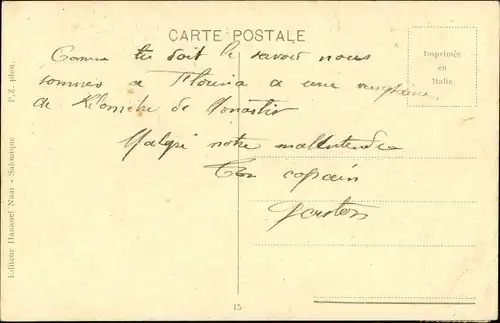 CARTE POSTALE
Comme tu doit le savoir nous
sommes a Florina a une vingtaine
de Kilometre de Monastir
Malgré notre mallentendu
Ton copain
Gaston
Imprimée
en
Italie
Editeur Hananel Naar - Salonique P.Z. phot.
15